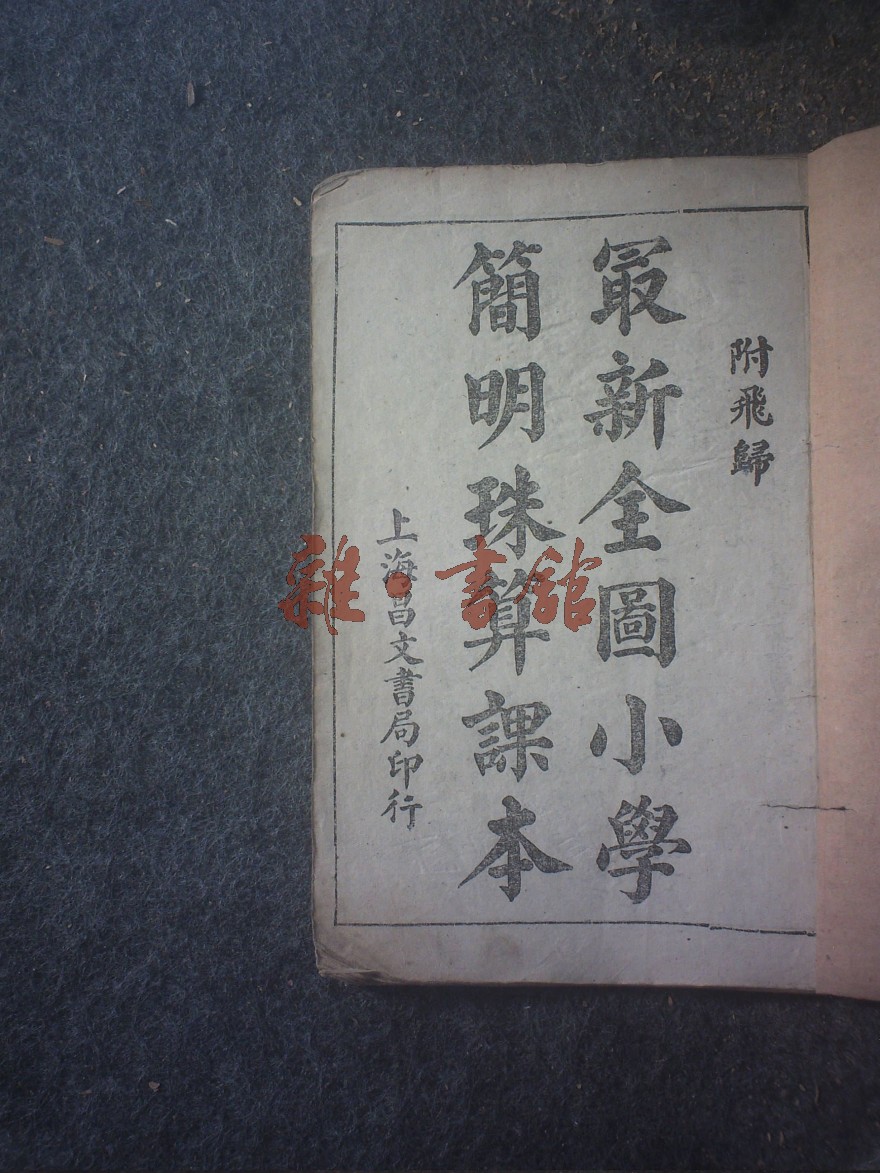 附飛歸
冣新全圖小學
簡明珠算課本
上海昌文書局印行
雜·書舘